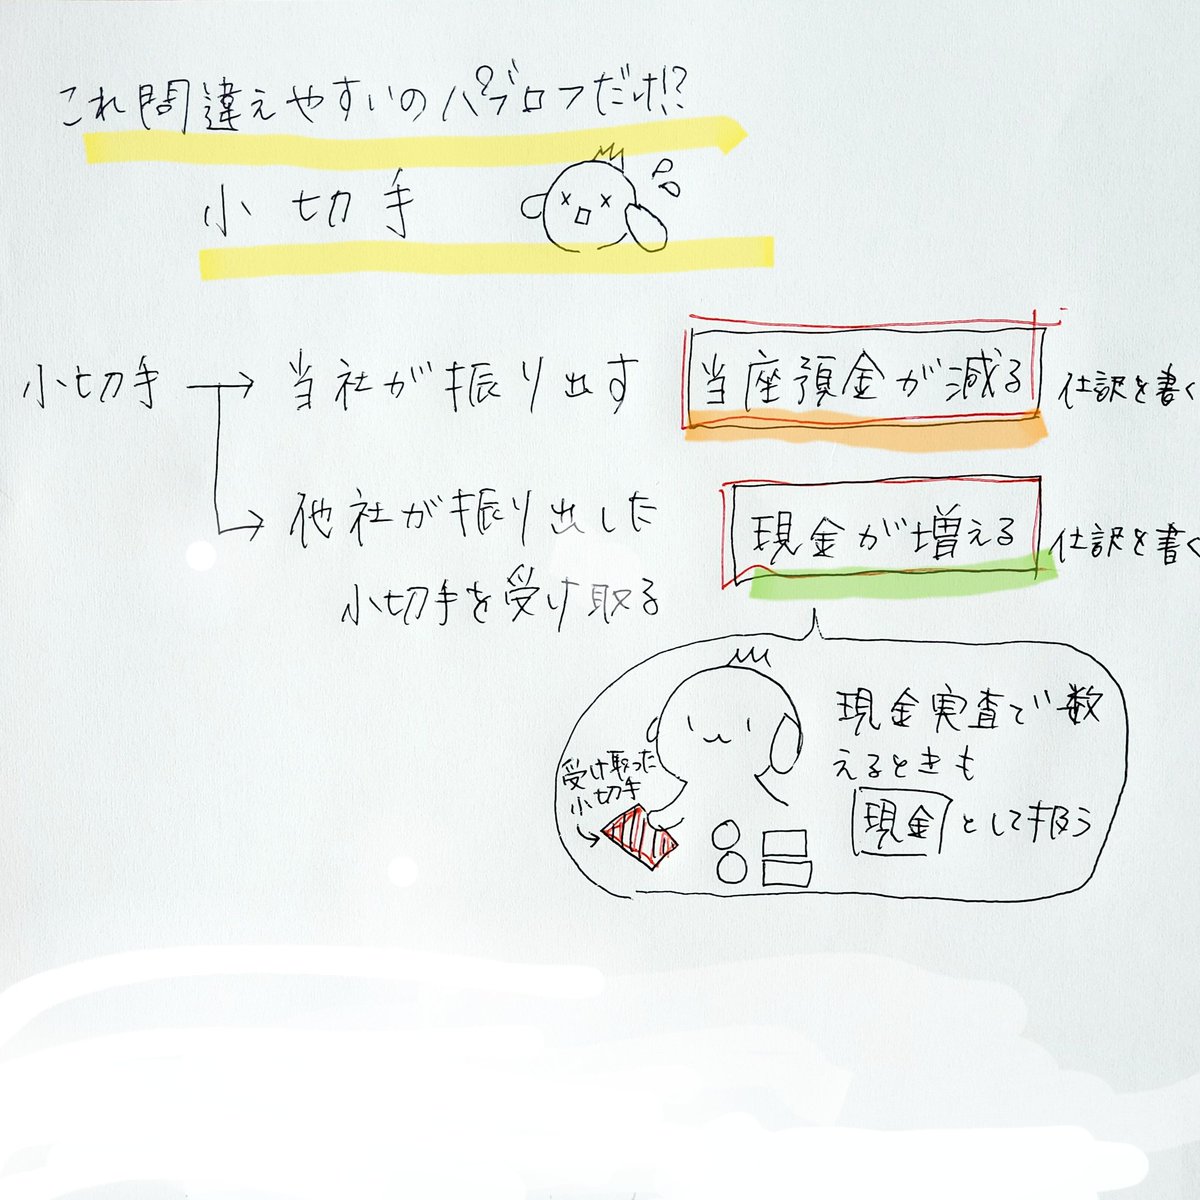 これ間違えやすいのパブロフだけ!?
小切手
小切手 → 当社が振り出す 当座預金が減る 仕訳を書く
→ 他社が振り出した 現金が増える 仕訳を書く
小切手を受け取る
現金実査で数
えるときも
現金として扱う
受け取った
小切手